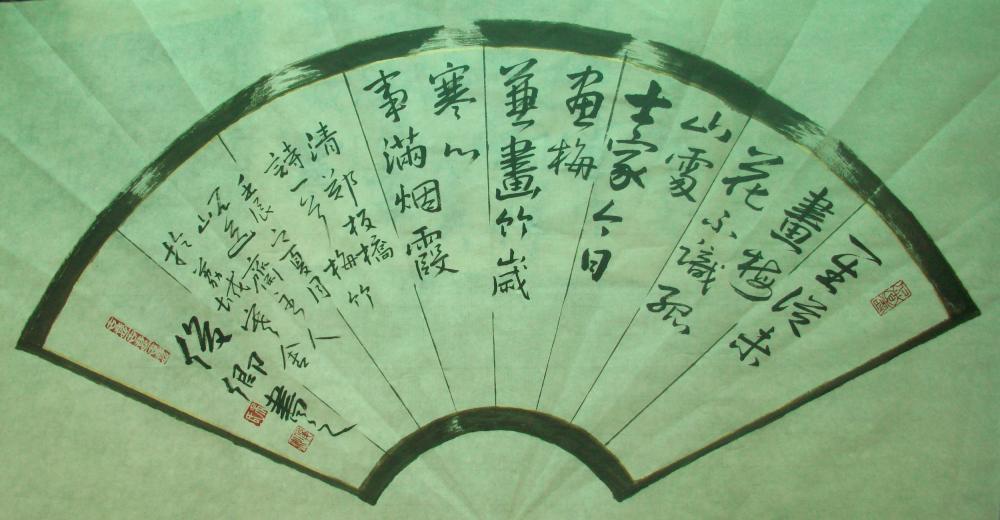 一生從未
畫梅
花不識孤
山處
士家今日
画梅
兼畫竹歲
寒心
事滿烟霞
清郑板橋
詩一首梅竹
壬辰之夏月
山齋主人
於荔城寒舍
俊卿書